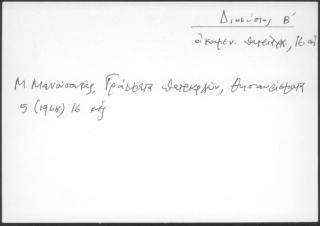 Διονύσιος Β΄
οἰκουμεν. πατριάρχης, 16 αἰ
Μ. Μανούσακας, Γράμματα πατριαρχῶν, Θησαυρίσματα
5 (1968) 16 κἑξ.